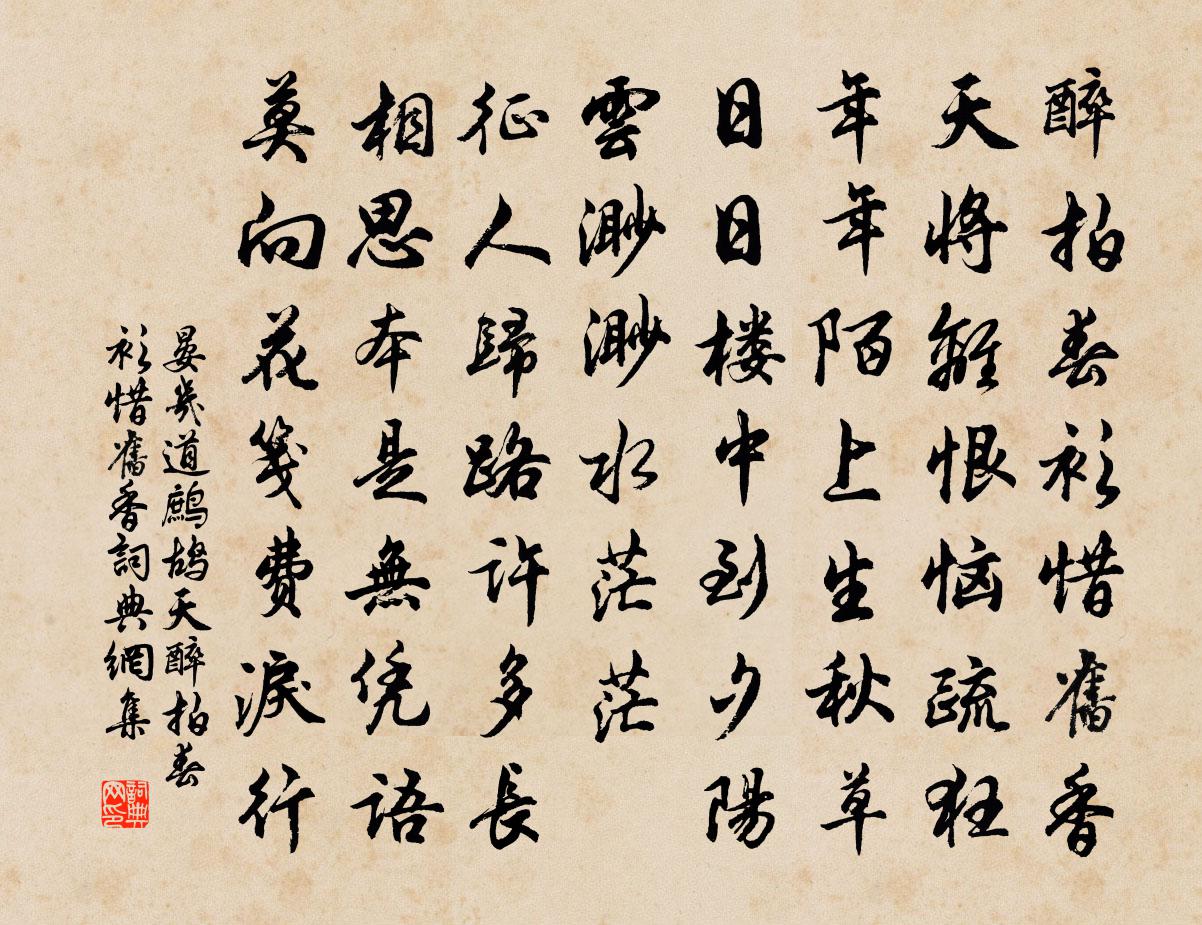 醉拍春衫惜舊香
天將離恨惱疏狂
年年陌上生秋草
日日楼中到夕陽
雲渺渺水茫茫
征人歸路許多長
相思本是無凭語
莫向花箋費淚行
晏幾道鷓鴣天醉拍春
衫惜舊香詞典網集
詞典
网印